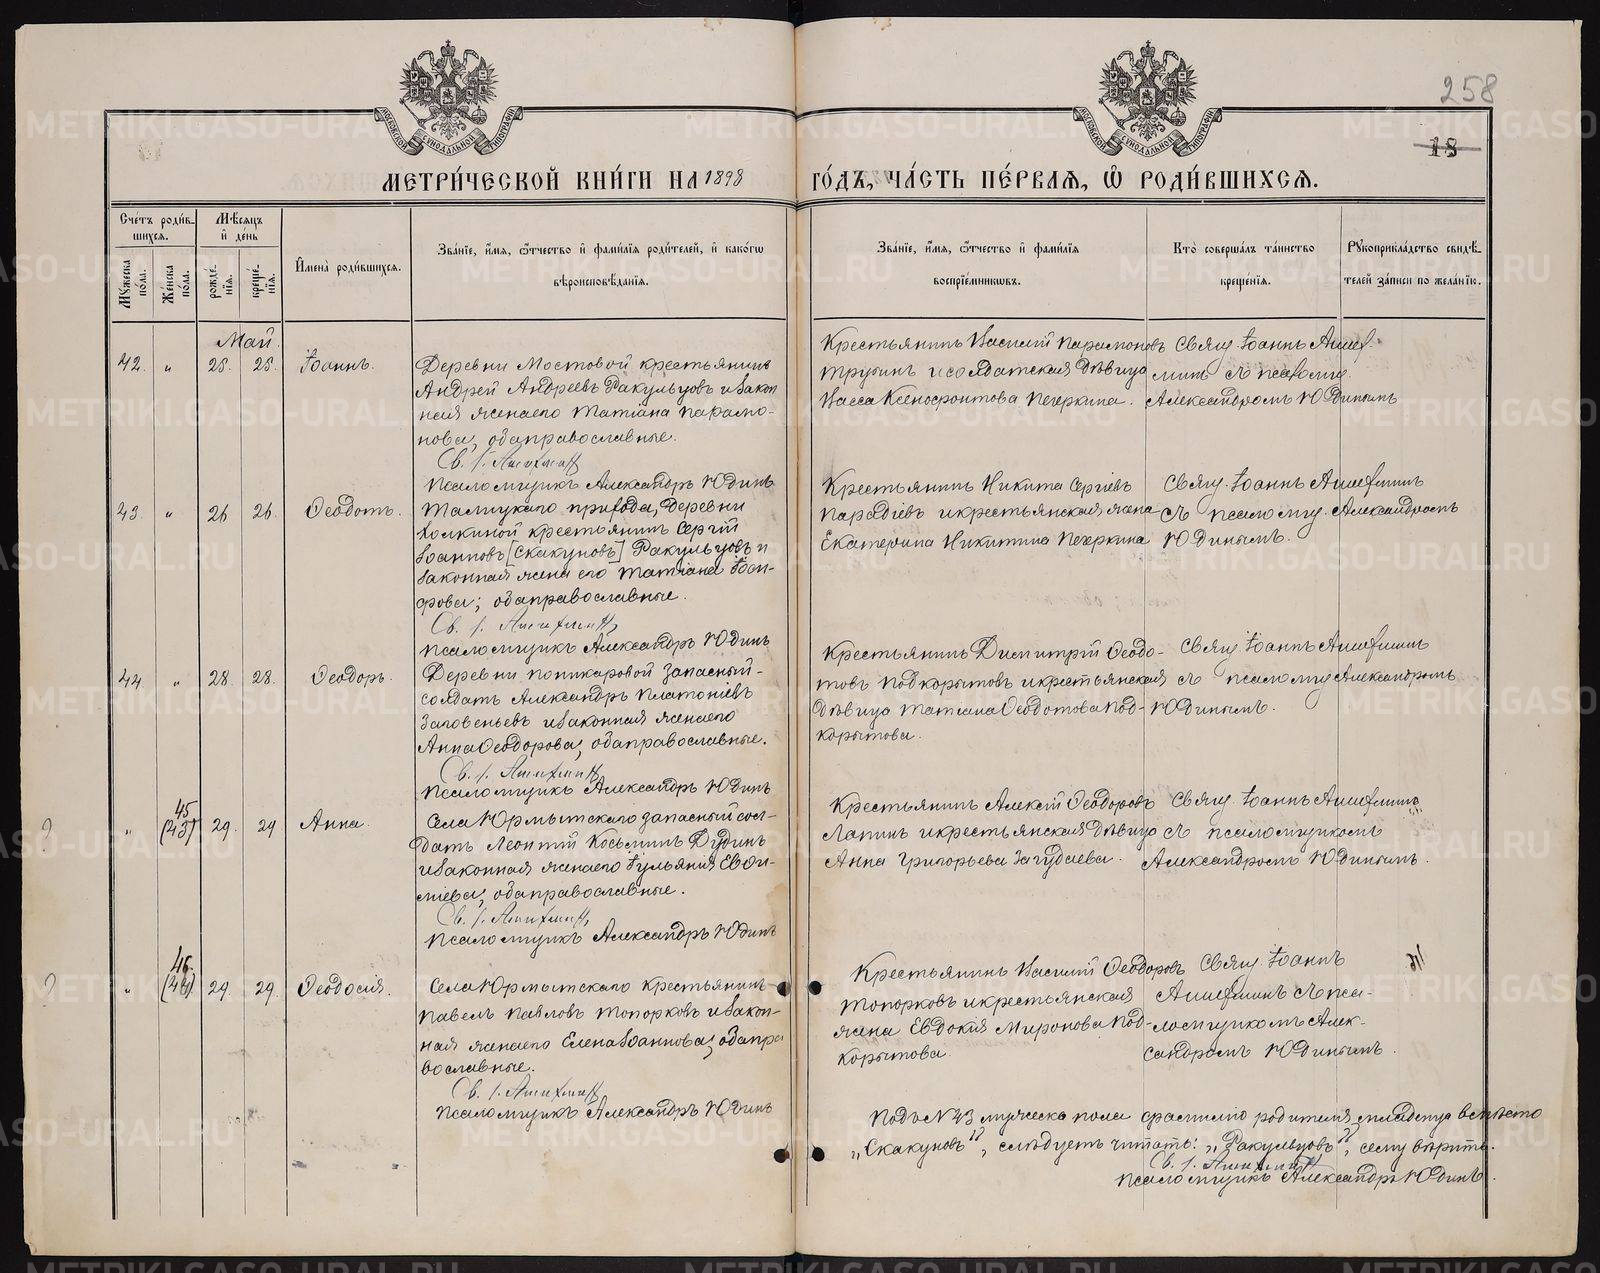 258
18
МОСКОВСКОЙ СѴНОДАЛЬНОЙ ТИПОГРАФІИ
МОСКОВСКОЙ СѴНОДАЛЬНОЙ ТИПОГРАФІИ
МЕТРИ́ЧЕСКОЙ КНИ́ГИ НА 1898 ГО́ДЪ, ЧА́СТЬ ПЕ́РВАЯ, Ѽ РОДИ́ВШИХСЯ.
Сче́тъ роди́в-
шихся.
Му́жеска
по́ла.
Же́нска
по́ла.
Мѣ́сяцъ
и҆ де́нь
рожде́-
нїя.
креще́-
нїя.
И҆мена̀ роди́вшихся.
Зва́нїе, и҆́мя, ѻ҆́тчество и҆ фами́лїя роди́телей, и҆ како́гѡ
вѣроисповѣ́данїя.
Зва́нїе, и҆́мя, ѻ҆́тчество и҆ фами́лїя
воспрїе́мниковъ.
Кто̀ соверша́лъ та́инство
креще́нїя.
Рꙋкоприкла́дство свидѣ́-
телей за́писи по жела́нїю.
Май.
42. „ 25. 25. Іоаннъ.
Деревни Мостовой крестьянинъ
Андрей Андреевъ Ракульцовъ и закон
ная жена его Татіана Парамо-
нова, оба православные.
Св. І.
Псаломщикъ Александръ Юдинъ
Крестьянинъ Василій Парамоновъ
Трубинъ и солдатская дѣвица
Васса Ксенофонтова Пекркина.
Свящ. Іоаннъ
минъ съ псаломщ.
Александромъ Юдинымъ
43. „ 26 26. Ѳеодотъ.
Талицкаго прихода, деревни
Холкиной крестьянинъ Сергій
Іоанновъ [Скакуновъ] Ракульцовъ и
законная жена его Татіана Іоси-
фова; оба православные.
Св. І.
Псаломщикъ Александръ Юдинъ
Крестьянинъ Никита Сергіевъ
и крестьянская жена
Екатерина Никитина Пекркина
Свящ. Іоаннъ
съ псаломщ. Александромъ
Юдинымъ.
44. „ 28. 28. Ѳеодоръ.
Деревни запасный
солдатъ Александръ Платоніевъ
и законная жена его
Анна Ѳеодорова, оба православные.
Св. І.
Псаломщикъ Александръ Юдинъ
Крестьянинъ Димитрій Ѳеодо-
товъ Подкорытовъ и крестьянская
дѣвица Татіана Ѳеодотова Под-
корытова.
Свящ. Іоаннъ
съ псаломщ Александромъ
Юдинымъ.
„ 45 (43) 29. 29 Анна.
Села Юрмытскаго запасный сол-
датъ Леонтій Косьминъ Дудинъ
и законная жена его Іуліанія Евѳи-
міева, оба православные.
Св. І.
Псаломщикъ Александръ Юдинъ
Крестьянинъ Алексій Ѳеодоровъ
Лапинъ и крестьянская дѣвица
Анна Григорьева
Свящ. Іоаннъ
съ псаломщикомъ
Александромъ Юдинымъ.
„ 46. (44) 29. 29. Ѳеодосія.
Села Юрмытскаго крестьянинъ
Павелъ Павловъ Топорковъ и закон-
ная жена его Елена Іоаннова, оба пра
вославные.
Св. І.
Псаломщикъ Александръ Юдинъ
Крестьянинъ Василій Ѳеодоровъ
Топорковъ и крестьянская
жена Евдокія Миронова Под-
корытова.
Свящ. Іоаннъ
съ пса-
ломщикомъ Алек-
сандромъ Юдинымъ.
Подъ N 43 мужеска пола фамилію родителя младенца вмѣсто
„Скакуновъ“, слѣдуетъ читать: „Ракульцовъ“, сему вѣрить.
Св. І.
Псаломщикъ Александръ Юдинъ.
METRIKI.GASO-URAL.RU